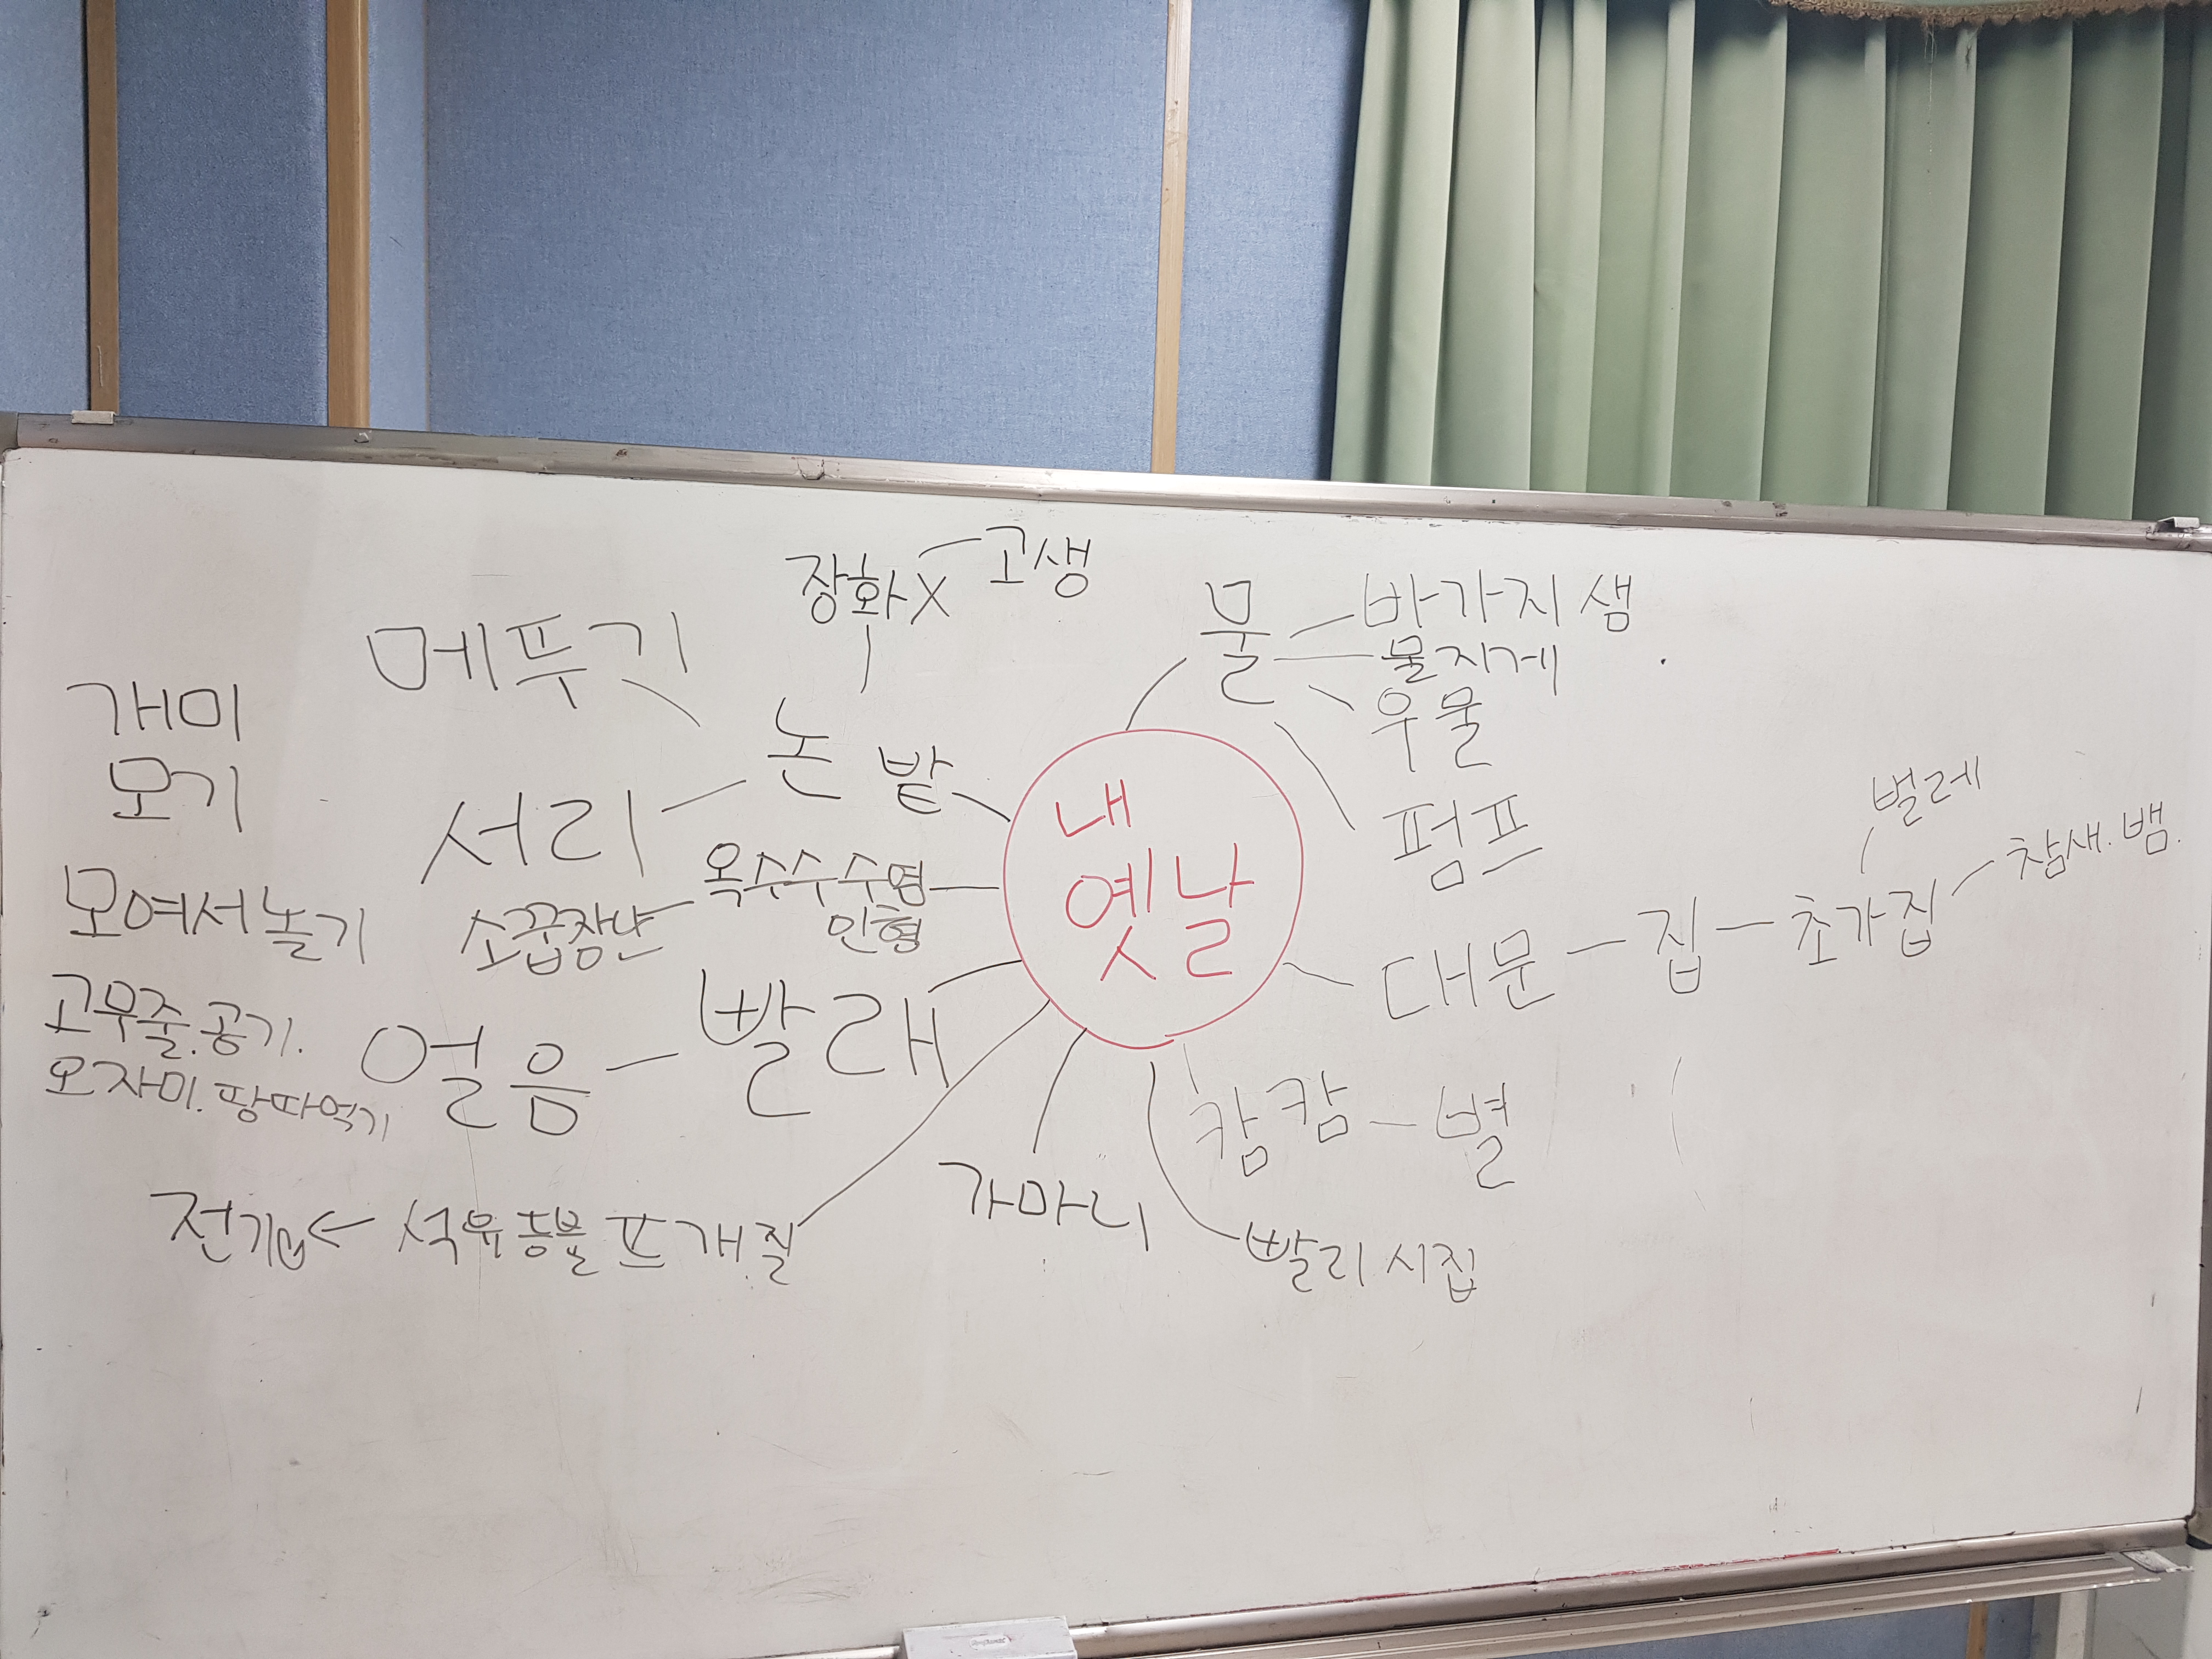 장화X 고생
메뚜기
물
바가지 샘
물지게
우물
펌프
개미
모기
논 밭
서리
내
옛날
옥수수 수염
인형
소꿉장난
모여서 놀기
벌레
참새. 뱀.
대문 집 초가집
고무줄. 공기.
오자미. 땅따먹기
얼음 빨래
캄캄 별
가마니
전기 ← 석유 등불 뜨개질
빨리 시집